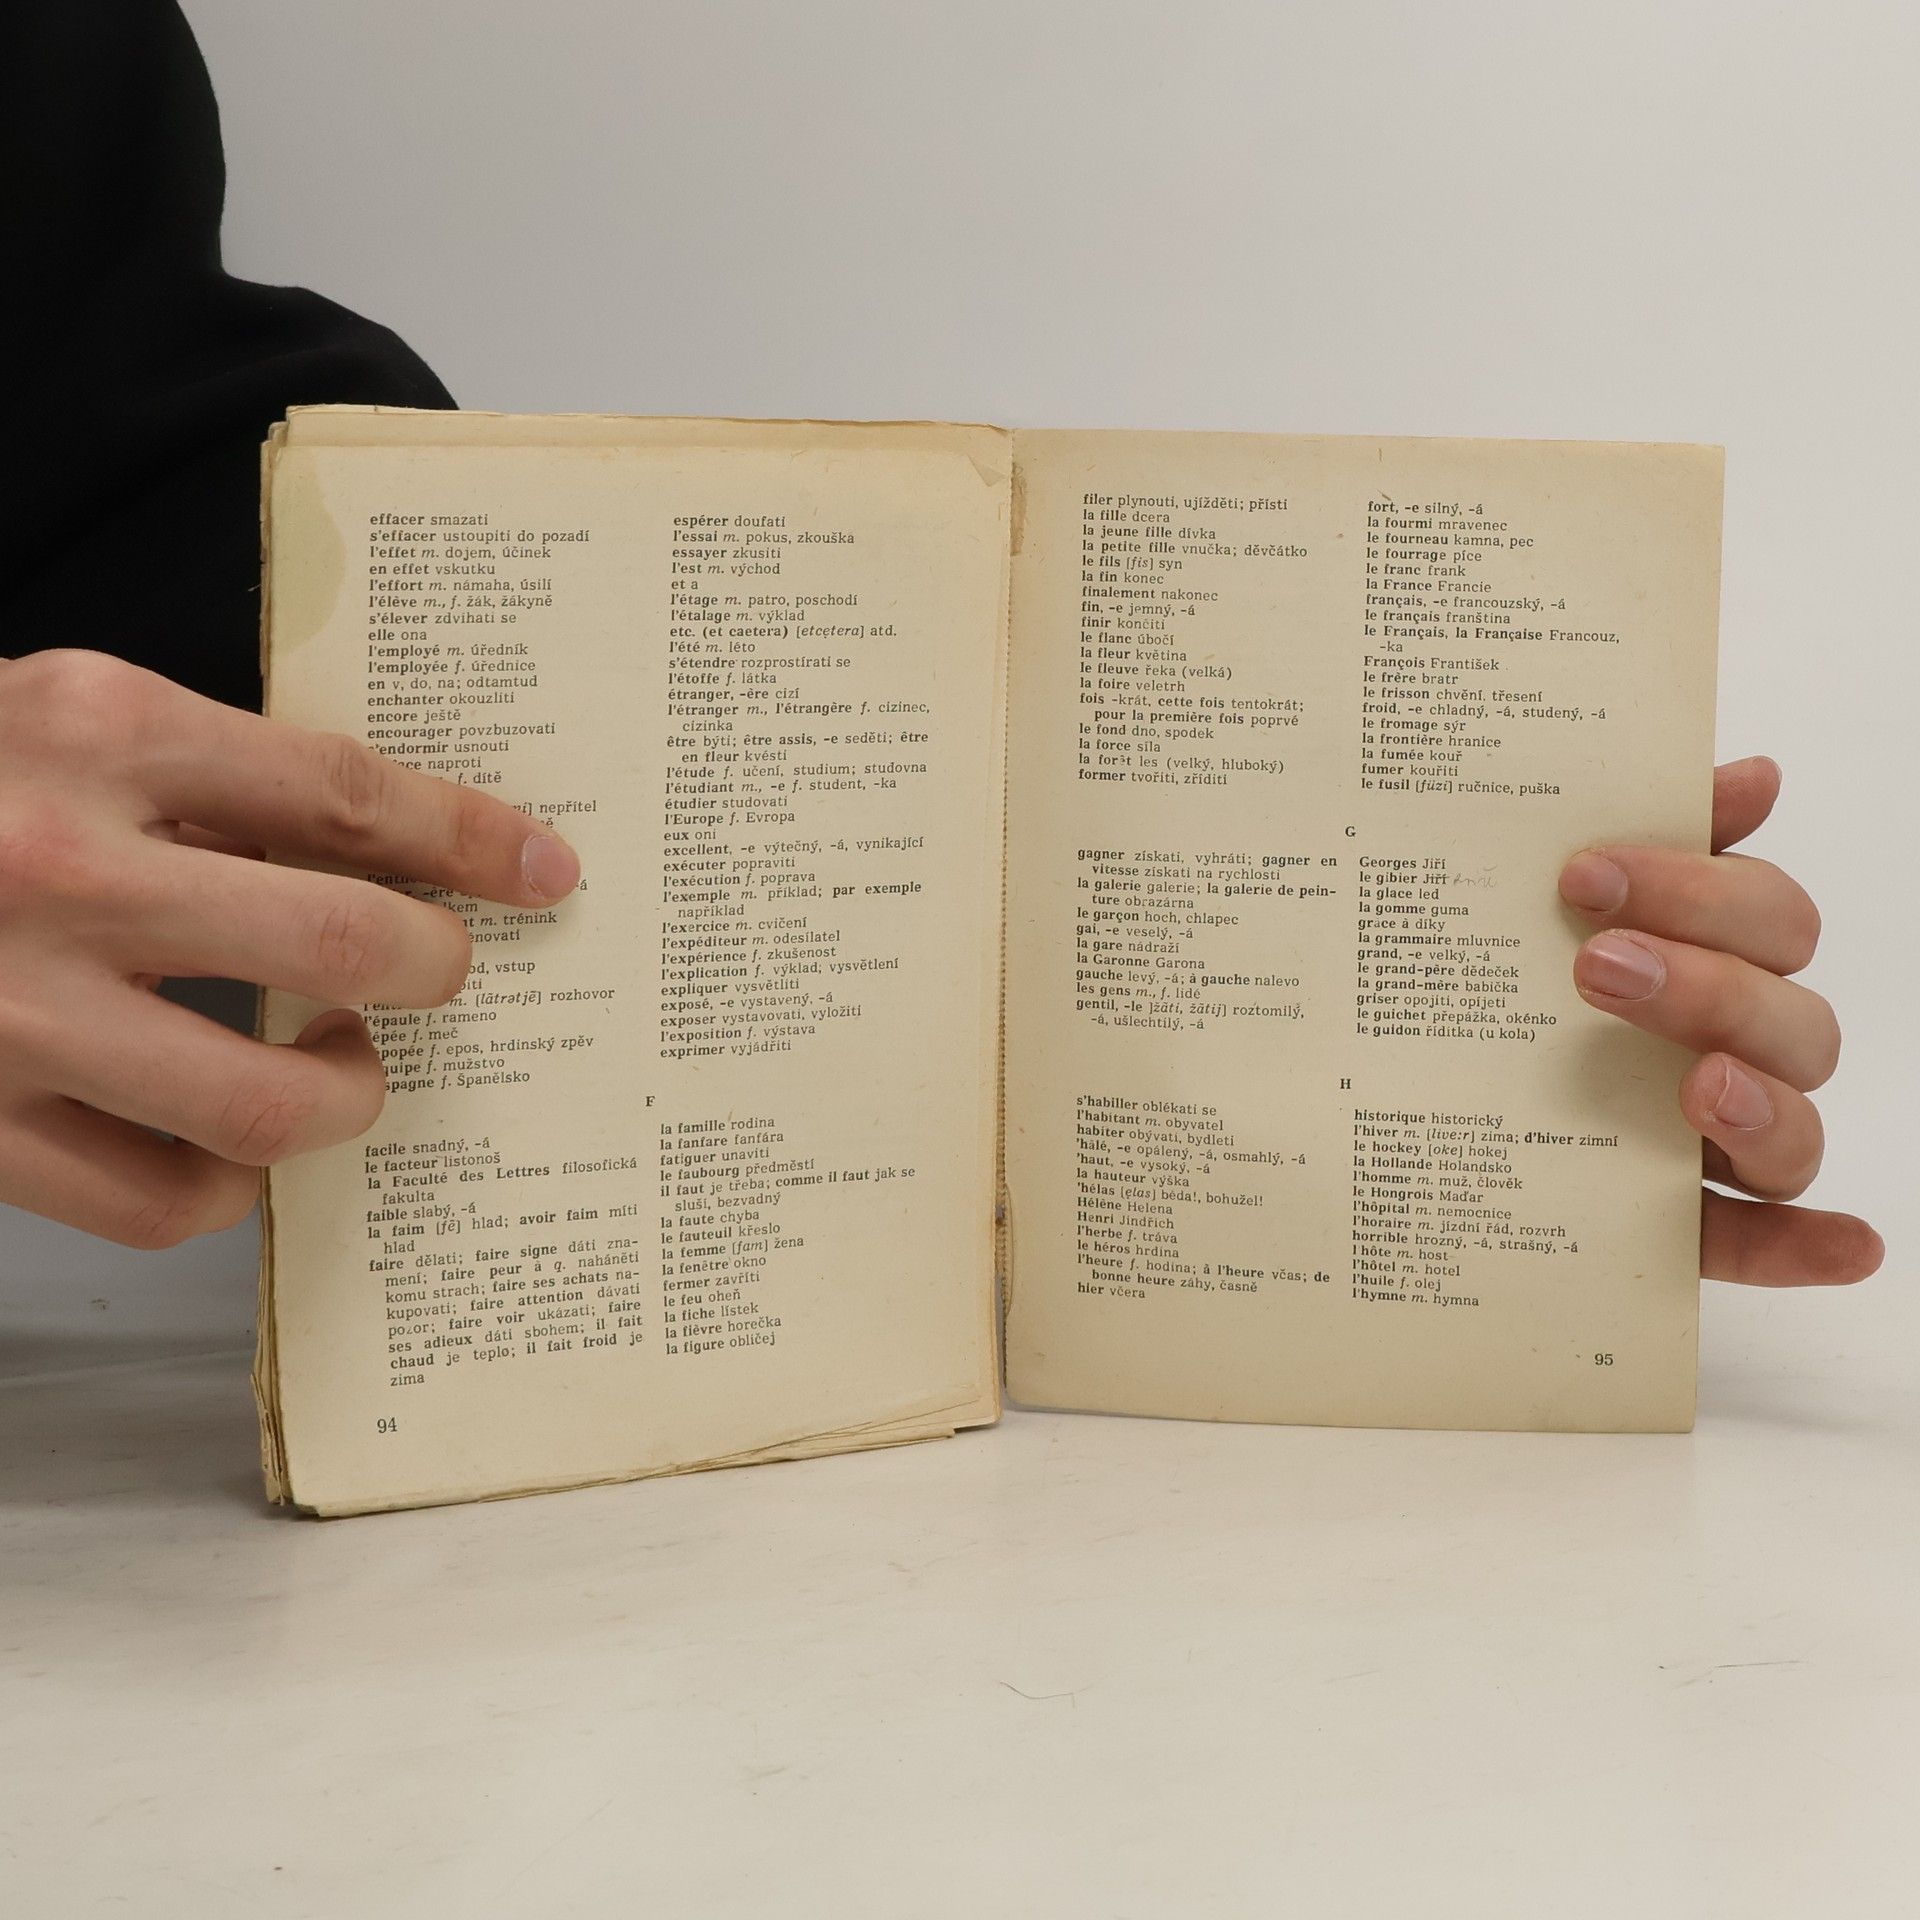 effacer smazati
s'effacer ustoupiti do pozadí
l'effet m. dojem, účinek
en effet vskutku
l'effort m. námaha, úsilí
l'élève m., f. žák, žákyně
s'élever zdvihati se
elle ona
l'employé m. úředník
l'employée f. úřednice
en v, do, na; odtamtud
enchanter okouzliti
encore ještě
encourager povzbuzovati
s'endormir usnouti
naproti
f. dítě
nepřítel
-ère
m. trénink
vstup
m. [lãtrətjẽ] rozhovor
l'épaule f. rameno
épée f. meč
épopée f. epos, hrdinský zpěv
équipe f. mužstvo
Espagne f. Španělsko
espérer doufati
l'essai m. pokus, zkouška
essayer zkusiti
l'est m. východ
et a
l'étage m. patro, poschodí
l'étalage m. výklad
etc. (et caetera) [etcętera] atd.
l'été m. léto
s'étendre rozprostírati se
l'étoffe f. látka
étranger, -ère cizí
l'étranger m., l'étrangère f. cizinec,
cizinka
être býti; être assis, -e seděti; être
en fleur kvésti
l'étude f. učení, studium; studovna
l'étudiant m., -e f. student, -ka
étudier studovati
l'Europe f. Evropa
eux oni
excellent, -e výtečný, -á, vynikající
exécuter popraviti
l'exécution f. poprava
l'exemple m. příklad; par exemple
například
l'exercice m. cvičení
l'expéditeur m. odesílatel
l'expérience f. zkušenost
l'explication f. výklad; vysvětlení
expliquer vysvětliti
exposé, -e vystavený, -á
exposer vystavovati, vyložiti
l'exposition f. výstava
exprimer vyjádřiti
F
facile snadný, -á
le facteur listonoš
la Faculté des Lettres filosofická
fakulta
faible slabý, -á
la faim [fẽ] hlad; avoir faim míti
hlad
faire dělati; faire signe dáti zna-
mení; faire peur à q. naháněti
komu strach; faire ses achats na-
kupovati; faire attention dávati
pozor; faire voir ukázati; faire
ses adieux dáti sbohem; il fait
chaud je teplo; il fait froid je
zima
la famille rodina
la fanfare fanfára
fatiguer unaviti
le faubourg předměstí
il faut je třeba; comme il faut jak se
sluší, bezvadný
la faute chyba
le fauteuil křeslo
la femme [fam] žena
la fenêtre okno
fermer zavříti
le feu oheň
la fiche lístek
la fièvre horečka
la figure obličej
94
filer plynouti, ujížděti; přísti
la fille dcera
la jeune fille dívka
la petite fille vnučka; děvčátko
le fils [fis] syn
la fin konec
finalement nakonec
fin, -e jemný, -á
finir končiti
le flanc úbočí
la fleur květina
le fleuve řeka (velká)
la foire veletrh
fois -krát, cette fois tentokrát;
pour la première fois poprvé
le fond dno, spodek
la force síla
la forêt les (velký, hluboký)
former tvořiti, zříditi
fort, -e silný, -á
la fourmi mravenec
le fourneau kamna, pec
le fourrage píce
le franc frank
la France Francie
français, -e francouzský, -á
le français franština
le Français, la Française Francouz,
-ka
François František
le frère bratr
le frisson chvění, třesení
froid, -e chladný, -á, studený, -á
le fromage sýr
la frontière hranice
la fumée kouř
fumer kouřiti
le fusil [füzi] ručnice, puška
G
gagner získati, vyhráti; gagner en
vitesse získati na rychlosti
la galerie galerie; la galerie de pein-
ture obrazárna
le garçon hoch, chlapec
gai, -e veselý, -á
la gare nádraží
la Garonne Garona
gauche levý, -á; à gauche nalevo
les gens m., f. lidé
gentil, -le ]žãti, žãtij] roztomilý,
-á, ušlechtilý, -á
Georges Jiří
le gibier Jiří
la glace led
la gomme guma
grâce à díky
la grammaire mluvnice
grand, -e velký, -á
le grand-père dědeček
la grand-mère babička
griser opojiti, opíjeti
le guichet přepážka, okénko
le guidon řídítka (u kola)
H
s'habiller oblékati se
l'habitant m. obyvatel
habiter obývati, bydleti
'hâlé, -e opálený, -á, osmahlý, -á
'haut, -e vysoký, -á
la hauteur výška
'hélas [ęlas] běda!, bohužel!
Hélène Helena
Henri Jindřich
l'herbe f. tráva
le héros hrdina
l'heure f. hodina; à l'heure včas; de
bonne heure záhy, časně
hier včera
historique historický
l'hiver m. [live:r] zima; d'hiver zimní
le hockey [oke] hokej
la Hollande Holandsko
l'homme m. muž, člověk
le Hongrois Maďar
l'hôpital m. nemocnice
l'horaire m. jízdní řád, rozvrh
horrible hrozný, -á, strašný, -á
l'hôte m. host
l'hôtel m. hotel
l'huile f. olej
l'hymne m. hymna
95